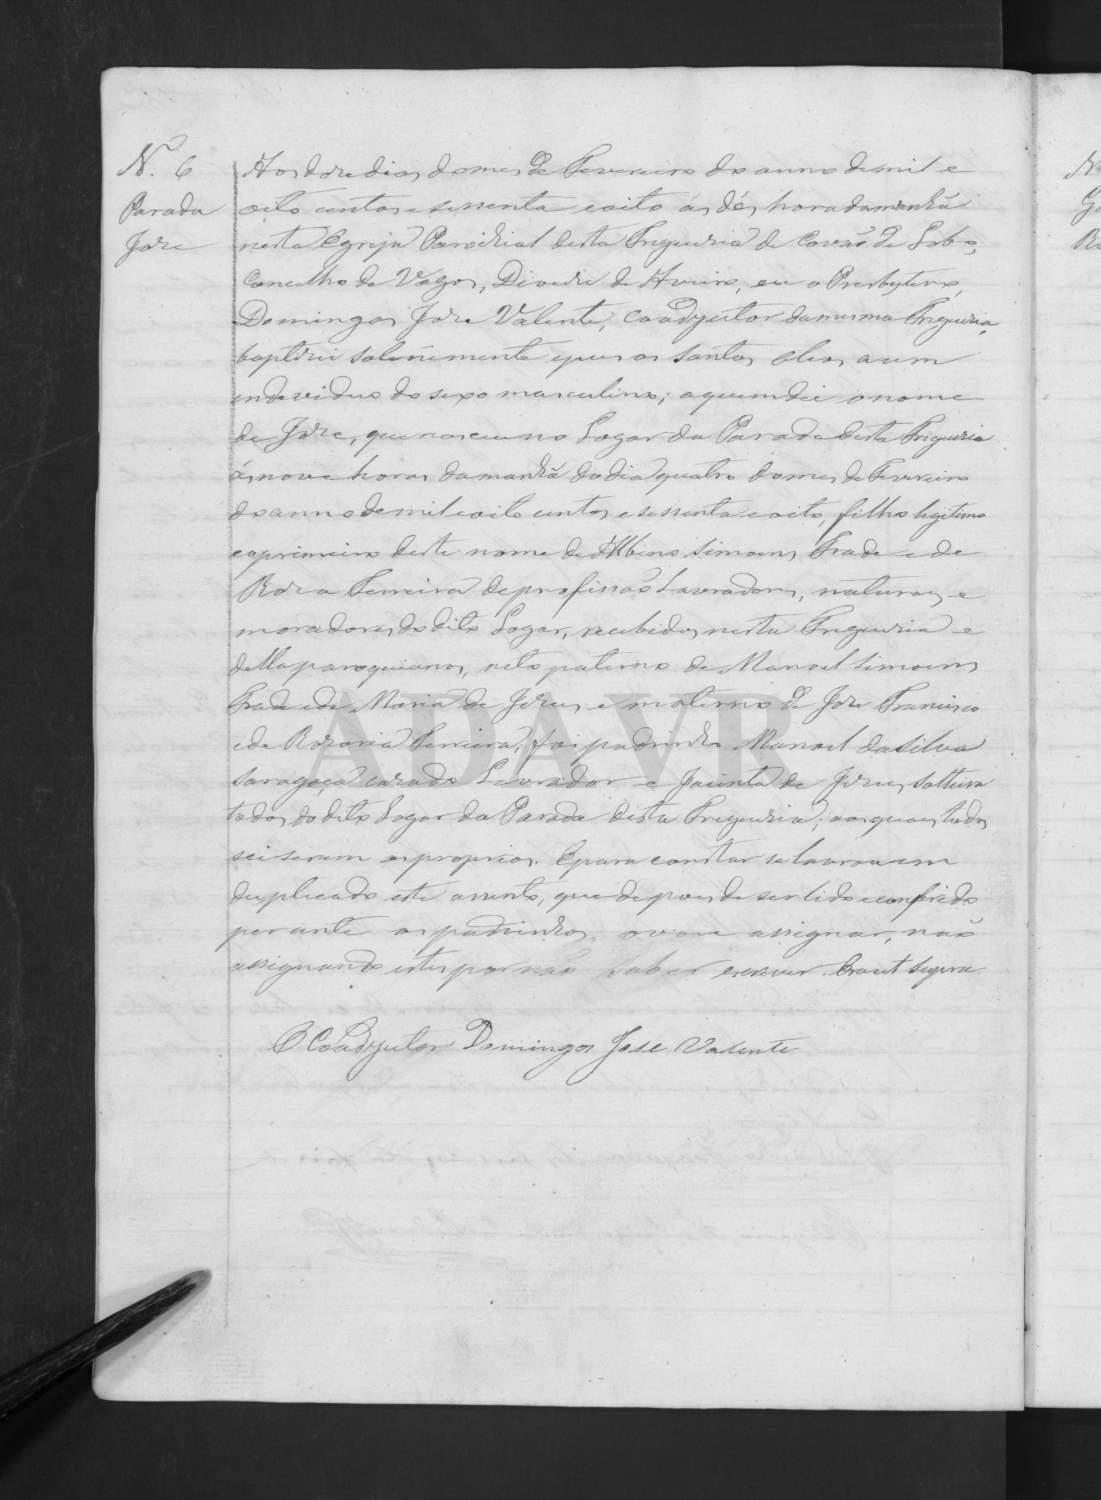 N.º 6
Parada
Joze
Aos doze dias do mes de Fevereiro do anno de mil e
oito centos e sessenta e oito ás dés hora da manhã
nesta Egreja Parochial desta Freguezia de Covão de Lobo,
Concelho de Vagos, Diocese de Aveiro, eu o Presbytero,
Domingos Joze Valente, Coadjutor da mesma Freguezia
baptizei solenemente e pus os santos oleos a um
individuo do sexo masculino; a quem dei o nome
de Joze, que nasceu no Logar da Parada desta Freguezia
ás nove horas da manhã do dia quatro do mes de Fevereiro
do anno de mil e oito centos e sessenta e oito, filho legitimo
e o primeiro deste nome de Albino Simoens Frade e de
Roza Ferreira de profissão Lavradores, naturaes e
moradores do dito Logar, recebidos nesta Freguezia e
della paroquianos, neto paterno de Manoel Simoens
Frade e de Maria de Jezus e materno de Joze Francisco
e de Rozaria Ferreira, foi padrinho Manoel da Silva
Saragoça cazado Lavrador e Jacinta de Jezus, solteira
todos do dito Logar da Parada desta Freguezia; aos quaes todos
sei serem os proprios. E para constar se lavrou em
duplicado este assento, que depois de ser lido e conferido
perante os padrinhos, o vou assignar, não
assignando estes por não saber escrever. Era ut supra.
O Coadjutor Domingos Jose Valente
ADAVR